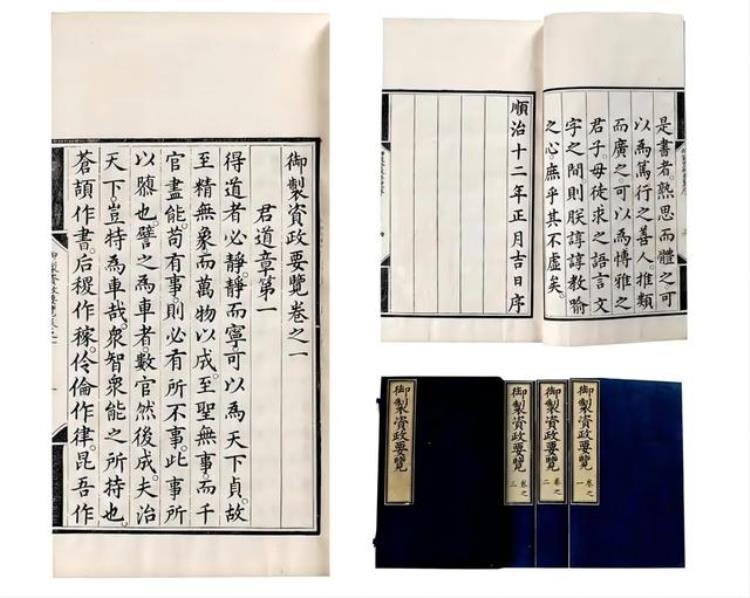 御製資政要覽卷之一
君道章第一
得道者必靜。靜而寧可以為天下貞。故
至精無象而萬物以成。至聖無事。而千
官盡能。苟有事。則必有所不事。此事所
以隳也。譬之為車者。數官然後成。夫治
天下。豈特為車哉。衆智衆能之所持也。
蒼頡作書。后稷作稼。伶倫作律。昆吾作
御製資政要覽卷之一
是書者。熟思而體之可
以為篤行之善人。推類
而廣之。可以為博雅之
君子。毋徒求之語言文
字之間。則朕諄諄教喻
之心。庶乎其不虛矣。
順治十二年正月吉日序
御製資政要覽
御製資政要覽 卷之三
御製資政要覽 卷之二
御製資政要覽 卷之一